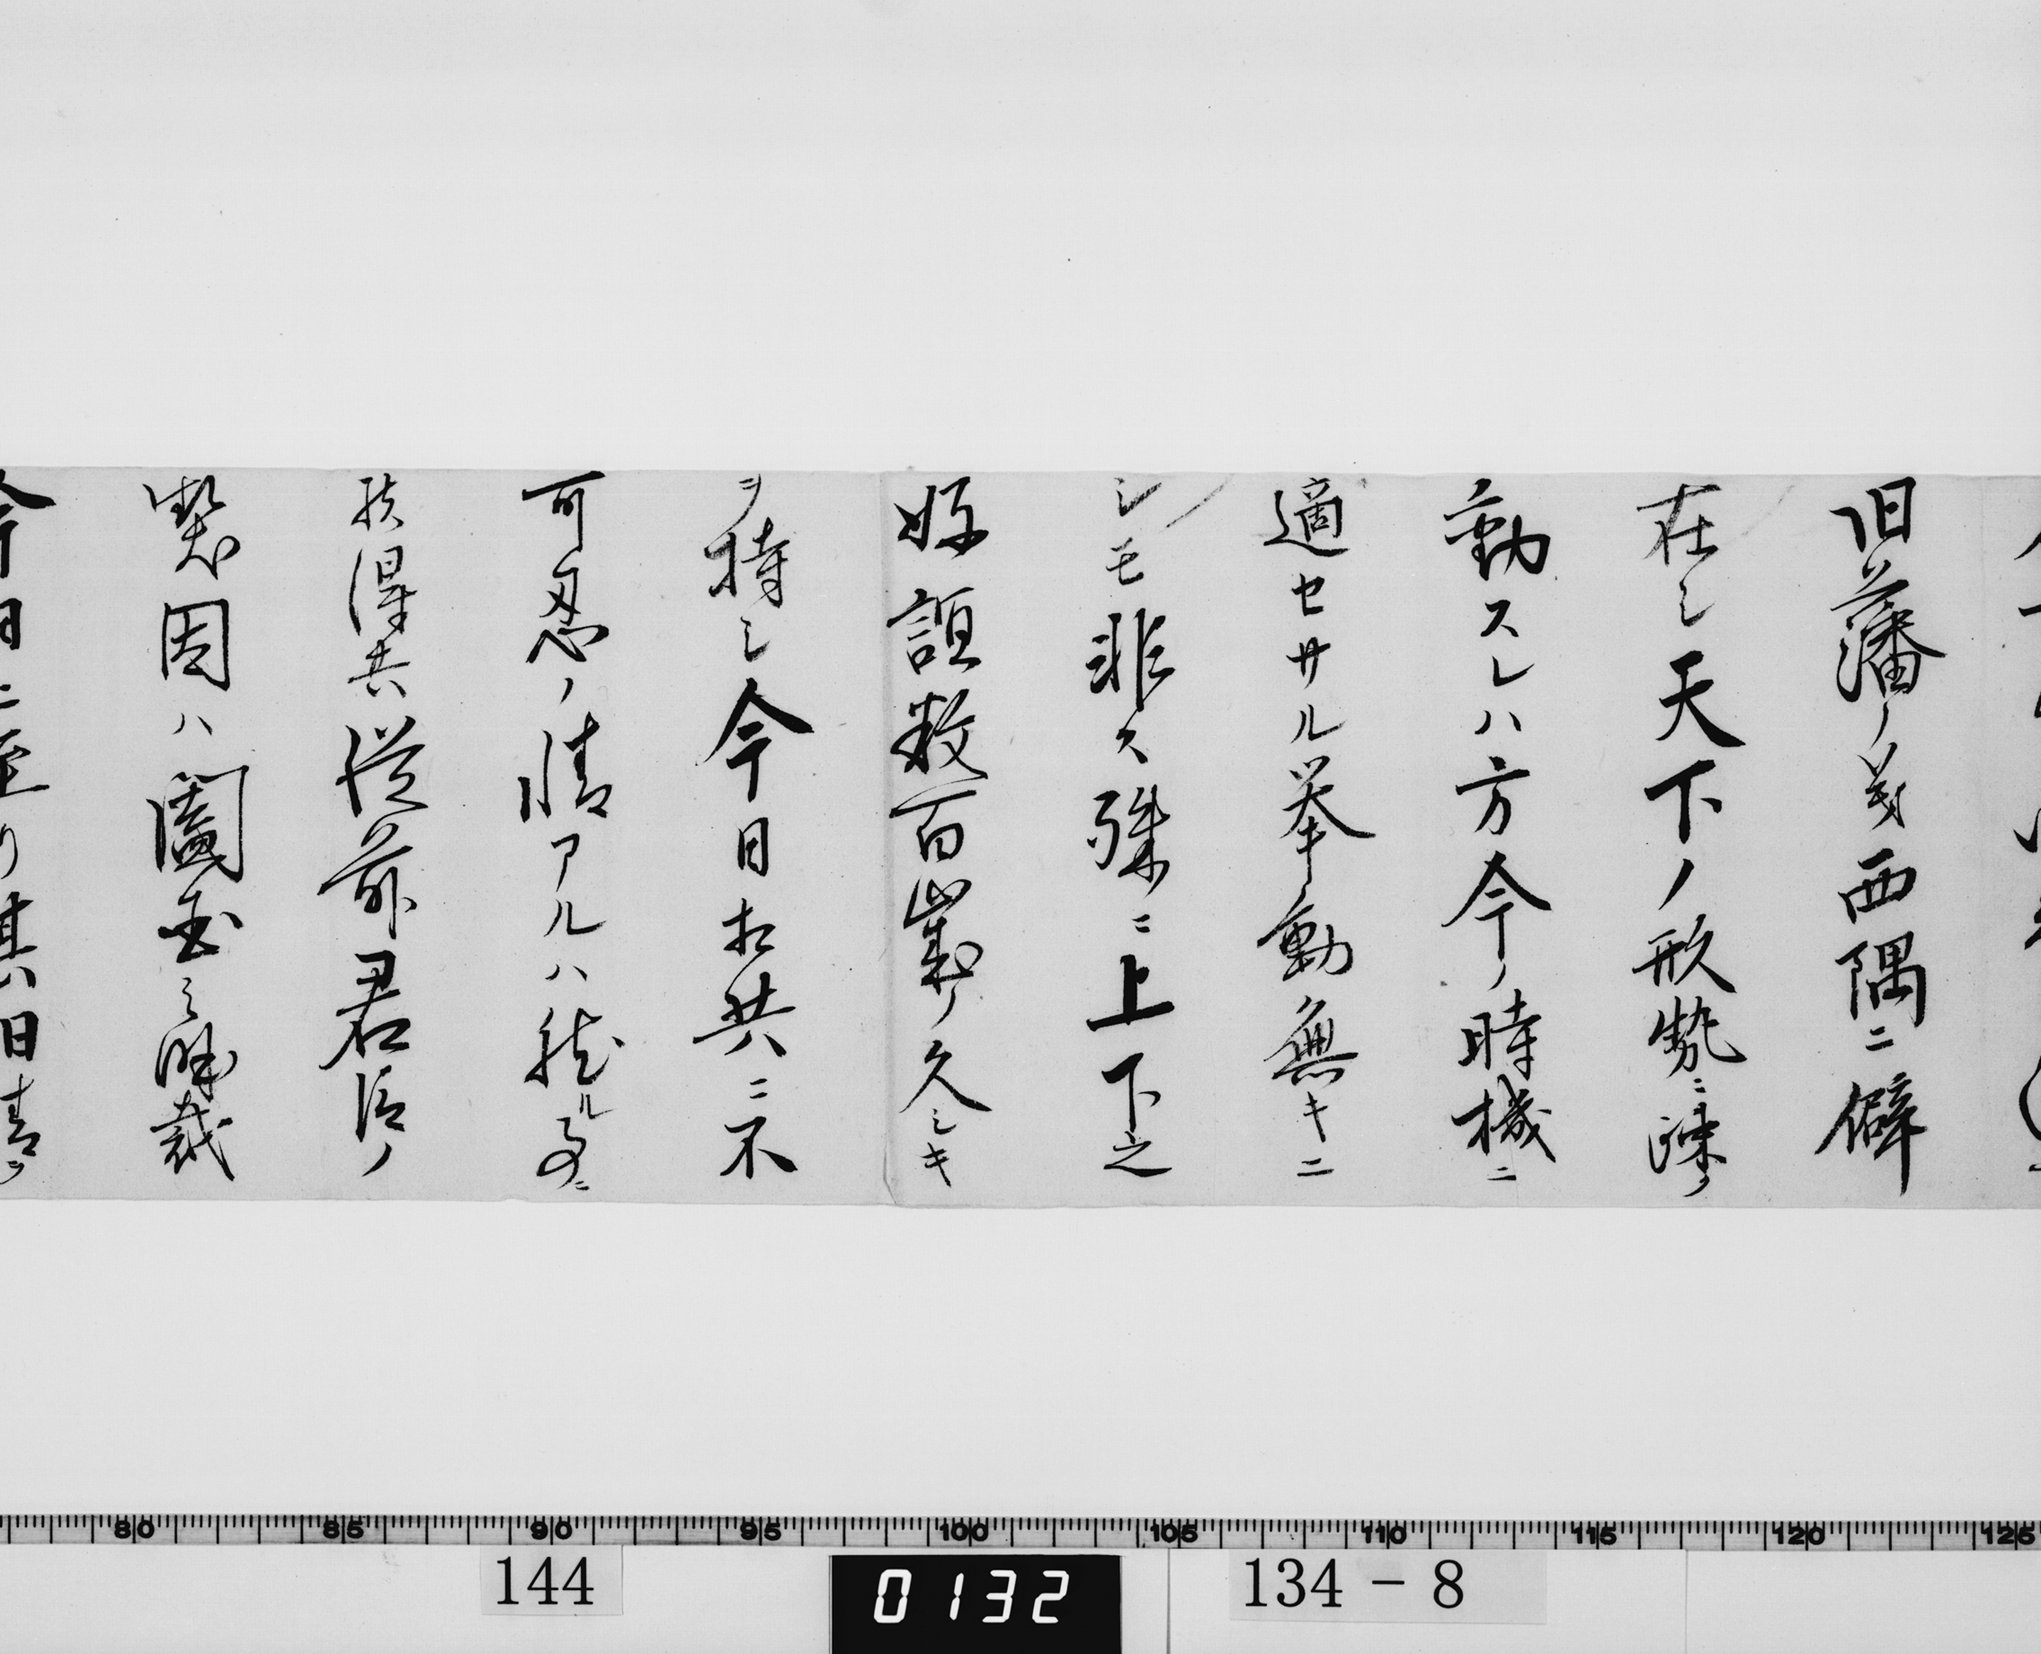 旧藩ノ義西隅ニ僻
在シ天下ノ形勢ニ疎ク
動スレハ方今ノ時機ニ
適セサル挙動無キニ
シモ非ス殊ニ上下之
好誼数百歳ノ久シキ
ヲ持シ今日相共ニ不
可忍ノ情アルハ然ル事ニ
候得共従前君臣ノ
契因ハ闔国之
今日ニ至リ其日
80 85 90 95 100 105 110 115 120 125
144
0132
134-8